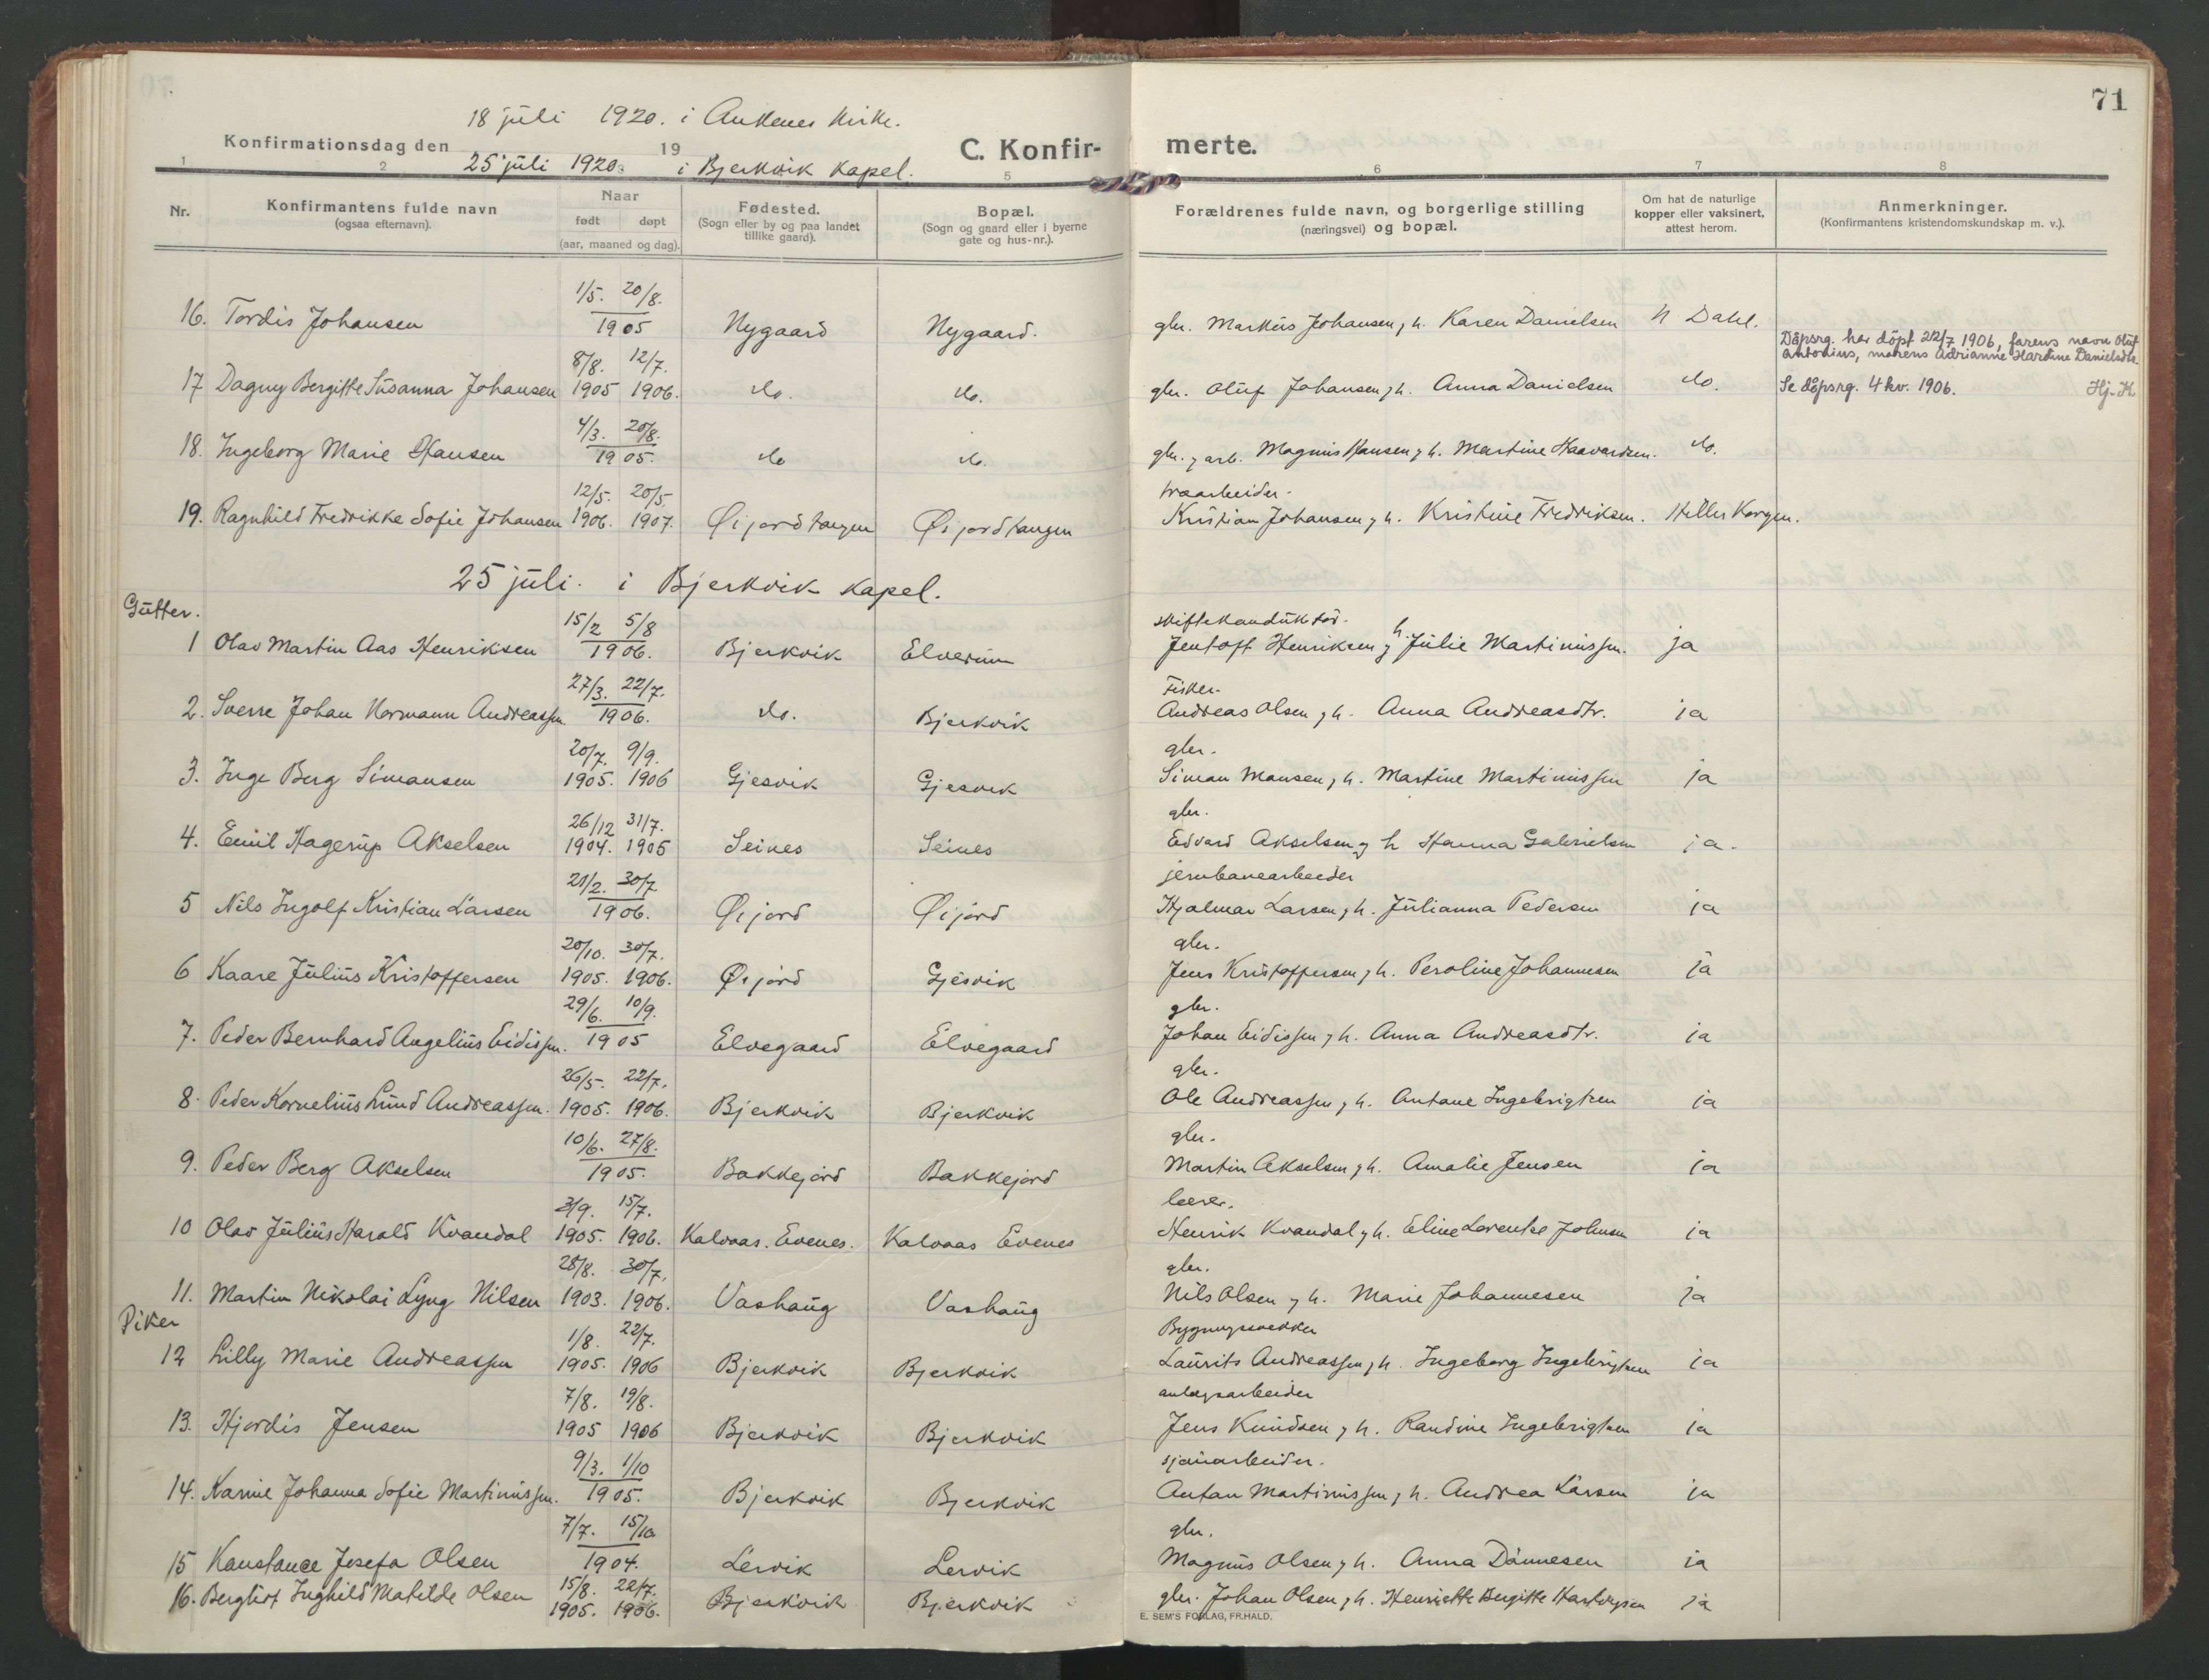 71
18 juli 1920. i Ankenes Kirke.
Konfirmationsdag den 19
C. Konfir- merte.
25 juli 1920. i Bjerkvik Kapel.
1 2 3 5 6 7 8
Nr.
Konfirmantens fulde navn
(ogsaa efternavn).
Naar
født døpt
(aar, maaned og dag).
Fødested.
(Sogn eller by og paa landet
tillike gaard).
Bopæl.
(Sogn og gaard eller i byerne
gate og hus-nr.).
Forældrenes fulde navn, og borgerlige stilling
(næringsvei) og bopæl.
Om hat de naturlige
kopper eller vaksinert,
attest herom.
Anmerkninger.
(Konfirmantens kristendomskundskap m. v.).
1/5. 20/8.
16. Tordis Johansen 1905 Nygaard Nygaard. gbr. Markus Johansen, h. Karen Danielsen N Dahl.
Dåpsrg. har døpt 22/7 1906, farens navn Oluf
Antonius, morens Adrianne Hardine Danielsdtr
8/8. 12/7.
17 Dagny Bergitte Susanna Johansen 1905 1906. do. do. gbr. Oluf Johansen, h. Anna Danielsen do. Se dåpsrg. 4 kv. 1906. Hj. K
4/3. 20/8.
18. Ingeborg Marie Hansen 1905. do do. gbr. , arb. Magnus Hansen, h. Martine Haavardsen. do.
12/5. 20/5. traarbeider.
19. Ragnhild Fredrikke Sofie Johansen 1906. 1907. Øijordtangen Øijordtangen Kristian Johansen, h. Kristine Fredriksen. Hilles Korgen.
25 juli. i Bjerkvik Kapel.
Gutter.
15/2 5/8 skiftekonduktør.
1 Olav Martin Aas Henriksen 1906. Bjerkvik Elverum Jentoft Henriksen, h. Julie Martinussen. ja
27/3. 22/7. Fisker.
2. Sverre Johan Normann Andreassen 1906. do. Bjerkvik Andreas Olsen, h. Anna Andreasdtr. ja
20/7. 9/9. gbr.
3. Inge Berg Simonsen 1905. 1906 Gjesvik Gjesvik Simon Monsen, h. Martine Martinussen ja
26/12 31/7. gbr.
4. Emil Hagerup Akselsen 1904. 1905 Seines Seines Edvard Akselsen, h Hanna Gabrielsen ja.
21/2. 30/7 jernbanearbeider
5 Nils Ingolf Kristian Larsen 1906. Øijord Øijord Hjalmar Larsen, h. Julianna Pedersen ja
20/10. 30/7. gbr.
6 Kaare Julius Kristoffersen 1905. 1906. Øijord Gjesvik Jens Kristoffersen, h. Peroline Johannesen ja
29/6. 10/9. gbr.
7. Peder Bernhard Angelius Eidissen. 1905 Elvegaard Elvegaard Johan Eidissen, h. Anna Andreasdtr. ja
26/5. 22/7. gbr.
8. Peder Kornelius Lund Andreassen. 1905. 1906. Bjerkvik Bjerkvik Ole Andreassen, h. Antane Ingebrigtsen ja
10/6. 27/8. gbr.
9. Peder Berg Akselsen 1905. Bakkejord Bakkejord Martin Akselsen, h. Amalie Jensen ja
3/9. 15/7. lærer.
10 Olav Julius Harald Kvandal 1905. 1906. Kalvaas. Evenes. Kalvaas Evenes Henrik Kvandal, h. Eline Lorentse Johnsen ja
28/8. 30/7. gbr.
11. Martin Nikolai Lyng Nilsen 1903. 1906. Vashaug Vashaug Nils Olsen, h. Marie Johannesen ja
Piker
1/8. 22/7.
12 Lilly Marie Andreassen 1905. 1906 Bjerkvik Bjerkvik Laurits Andreassen, h. Ingeborg Ingebrigtsen ja
7/8. 19/8. anlegsarbeider
13. Hjørdis Jensen 1905 1906 Bjerkvik Bjerkvik Jens Knudsen, h. Randine Ingebrigtsen ja
9/3. 1/10 sjauarbeider.
14. Karnie Johanna Sofie Martinussen. 1905. Bjerkvik Bjerkvik Antan Martinussen, h. Andrea Larsen ja
7/7. 15/10 gbr.
15 Konstance Josefa Olsen 1904. Lervik Lervik Magnus Olsen, h. Anna Dønnesen ja
15/8. 22/7.
16. Bergliot Inghild Matilde Olsen 1905. 1906. Bjerkvik Bjerkvik gbr. Johan Olsen, h. Henriette Bergitte Hartvigsen ja
E. SEM'S FORLAG, FR.HALD.